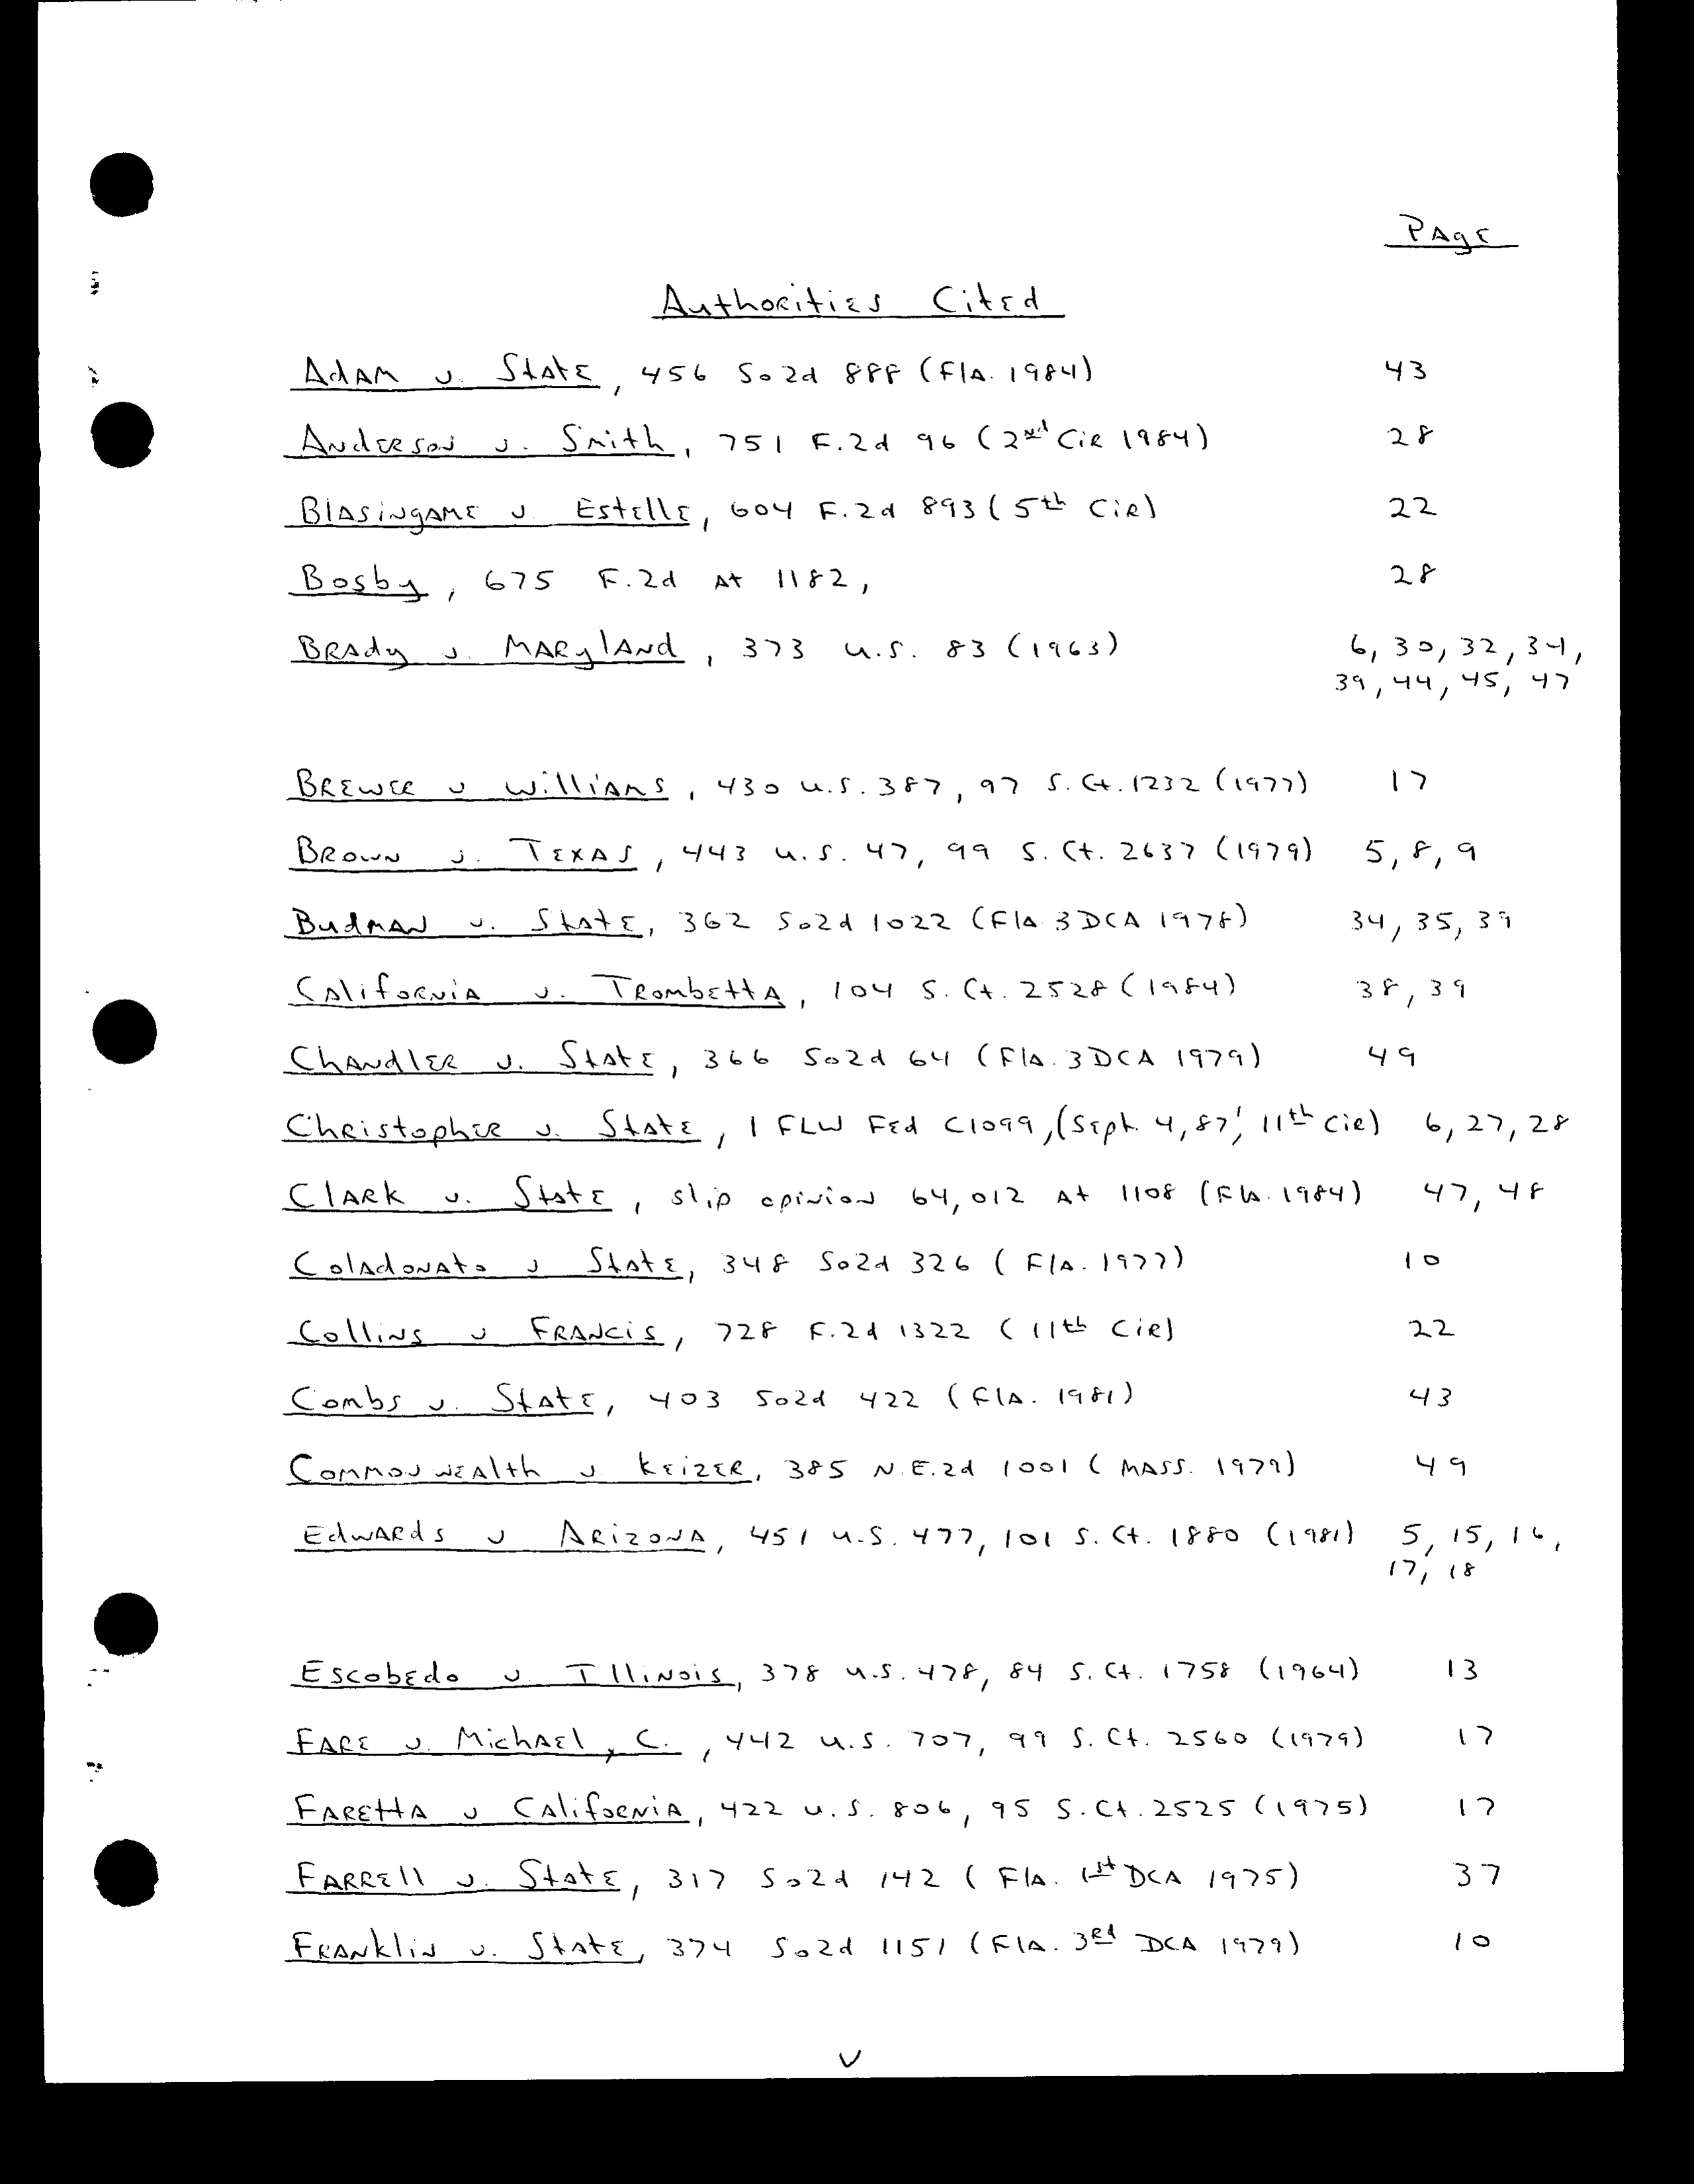 Page
Authorities Cited
Adam v. State, 456 So2d 888 (Fla. 1984) 43
Anderson v. Smith, 751 F.2d 96 (2nd Cir 1984) 28
Blasingame v Estelle, 604 F.2d 893 (5th Cir) 22
Bosby, 675 F.2d At 1182, 28
Brady v. Maryland, 373 U.S. 83 (1963) 6, 30, 32, 34,
39, 44, 45, 47
Brewer v Williams, 430 U.S. 387, 97 S. Ct. 1232 (1977) 17
Brown v. Texas, 443 U.S. 47, 99 S. Ct. 2637 (1979) 5, 8, 9
Budman v. State, 362 So2d 1022 (Fla 3 DCA 1978) 34, 35, 39
California v. Trombetta, 104 S. Ct. 2528 (1984) 38, 39
Chandler v. State, 366 So2d 64 (Fla. 3 DCA 1979) 49
Christopher v. State, 1 FLW Fed C1099, (Sept. 4, 87', 11th Cir) 6, 27, 28
Clark v. State, slip opinion 64,012 At 1108 (Fla. 1984) 47, 48
Coladonato v State, 348 So2d 326 (Fla. 1977) 10
Collins v Francis, 728 F.2d 1322 (11th Cir) 22
Combs v. State, 403 So2d 422 (Fla. 1981) 43
Commonwealth v Keizer, 385 N.E.2d 1001 (Mass. 1979) 49
Edwards v Arizona, 451 U.S. 477, 101 S. Ct. 1880 (1981) 5, 15, 16,
17, 18
Escobedo v Illinois, 378 U.S. 478, 84 S. Ct. 1758 (1964) 13
Fare v. Michael, C., 442 U.S. 707, 99 S. Ct. 2560 (1979) 17
Faretta v California, 422 U.S. 806, 95 S. Ct. 2525 (1975) 17
Farrell v. State, 317 So2d 142 (Fla. 1st DCA 1975) 37
Franklin v. State, 374 So2d 1151 (Fla. 3rd DCA 1979) 10
v